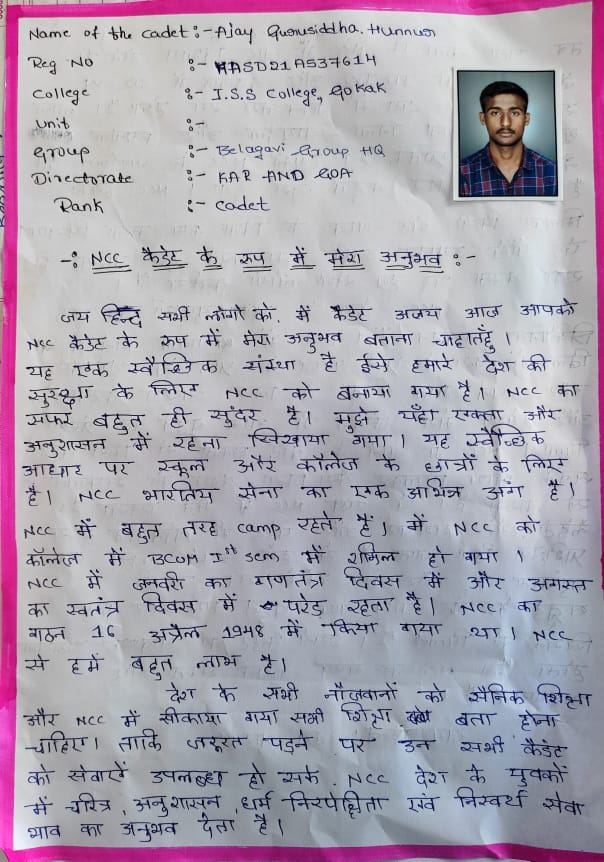 Name of the cadet :- Ajay Gurusiddha. Hunnur
Reg No :- KASD21A537614
College :- I.S.S College, Gokak
Unit :-
Group :- Belagavi Group HQ
Directorate :- KAR AND GOA
Rank :- Cadet
-: NCC कैडेट के रूप में मेरा अनुभव :-
जय हिन्द सभी लोगों को. में कैडेट अजय आज आपको
NCC कैडेट के रूप में मेरा अनुभव बताना चाहातहुँ।
यह एक स्वैच्छिक संस्था है ईसे हमारे देश की
सुरक्षा के लिए NCC को बनाया गया है। NCC का
सफर बहुत ही सुंदर है। मुझे यहाँ एकता और
अनुशासन में रहना सिखाया गया। यह स्वैच्छिक
आधार पर स्कूल और कॉलेज के छात्रों के लिए
है। NCC भारतिय सेना का एक अभिन्न अंग है।
NCC में बहुत तरह camp रहते हैं। में NCC को
कॉलेज में BCOM Ist sem में शामिल हो गया।
NCC में जनवरी का गणतंत्र दिवस में और अगस्त
का स्वतंत्र दिवस में परेड रहता है। NCC का
गठन 16 अप्रैल 1948 में किया गया था। NCC
से हमें बहुत लाभ है।
देश के सभी नौजवानों को सैनिक शिक्षा
और NCC में सीकाया गया सभी शिक्षा बता होना
चाहिए। ताकि जरूरत पड़ने पर उन सभी कैडेट
को सेवाऐं उपलब्ध हो सके. NCC देश के युवकों
में चरित्र, अनुशासन, धर्म निरपेक्षिता एवं निस्वर्थ सेवा
भाव का अनुभव देता है।